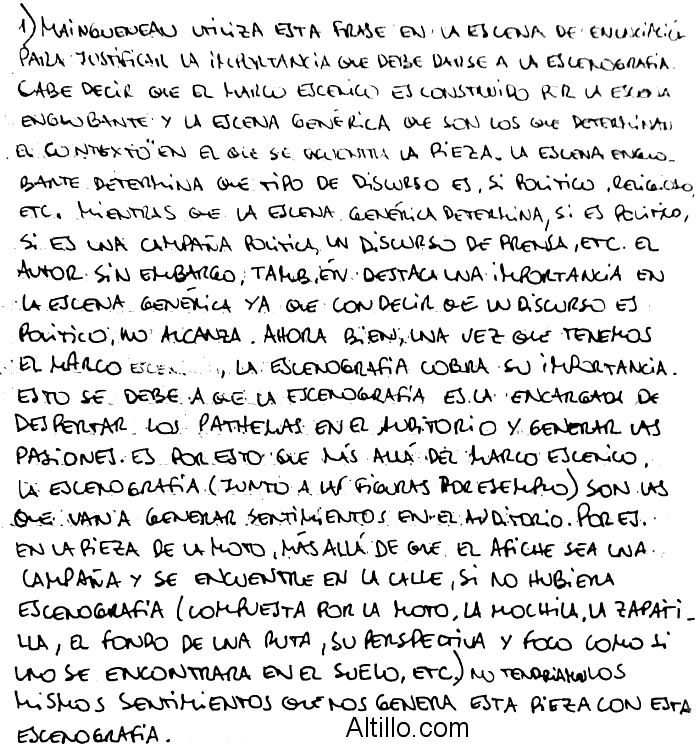 1) MAINGUENEAU UTILIZA ESTA FRASE EN LA ESCENA DE ENUNCIACIÓN
PARA JUSTIFICAR LA IMPORTANCIA QUE DEBE DARSE A LA ESCENOGRAFIA.
CABE DECIR QUE EL MARCO ESCENICO ES CONSTRUIDO POR LA ESCENA
ENGLOBANTE Y LA ESCENA GENÉRICA QUE SON LOS QUE DETERMINAN
EL "CONTEXTO" EN EL QUE SE ENCUENTRA LA PIEZA. LA ESCENA ENGLO-
BANTE DETERMINA QUE TIPO DE DISCURSO ES, SI POLITICO, RELIGIOSO,
ETC. MIENTRAS QUE LA ESCENA GENÉRICA DETERMINA, SI ES POLITICO,
SI ES UNA CAMPAÑA POLITICA, UN DISCURSO DE PRENSA, ETC. EL
AUTOR SIN EMBARGO, TAMBIÉN DESTACA UNA IMPORTANCIA EN
LA ESCENA GENÉRICA YA QUE CON DECIR QUE UN DISCURSO ES
POLITICO, NO ALCANZA. AHORA BIEN, UNA VEZ QUE TENEMOS
EL MARCO , LA ESCENOGRAFÍA COBRA SU IMPORTANCIA.
ESTO SE DEBE A QUE LA ESCENOGRAFÍA ES LA ENCARGADA DE
DESPERTAR LOS PATHEMAS EN EL AUDITORIO Y GENERAR LAS
PASIONES. ES POR ESTO QUE MÁS ALLÁ DEL MARCO ESCENICO,
LA ESCENOGRAFÍA (JUNTO A LAS FIGURAS POR EJEMPLO) SON LAS
QUE VAN A GENERAR SENTIMIENTOS EN EL AUDITORIO. POR EJ.
EN LA PIEZA DE LA MOTO, MÁS ALLÁ DE QUE EL AFICHE SEA UNA
CAMPAÑA Y SE ENCUENTRE EN LA CALLE, SI NO HUBIERA
ESCENOGRAFÍA (COMPUESTA POR LA MOTO, LA MOCHILA, LA ZAPATI-
LLA, EL FONDO DE UNA RUTA, SU PERSPECTIVA Y FOCO COMO SI
UNO SE ENCONTRARA EN EL SUELO, ETC.) NO TENDRIAMOS LOS
MISMOS SENTIMIENTOS QUE NOS GENERA ESTA PIEZA CON ESTA
ESCENOGRAFÍA.
Altillo.com